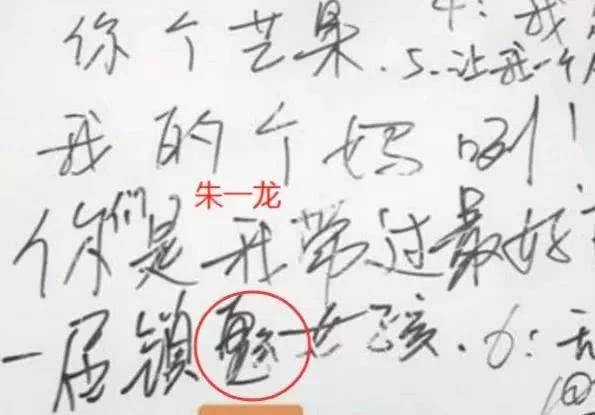 4: 我
你个芒果. 5.让我一个
我的个妈咧!
朱一龙
你们是我带过最好
一届镇魂女孩. 6: